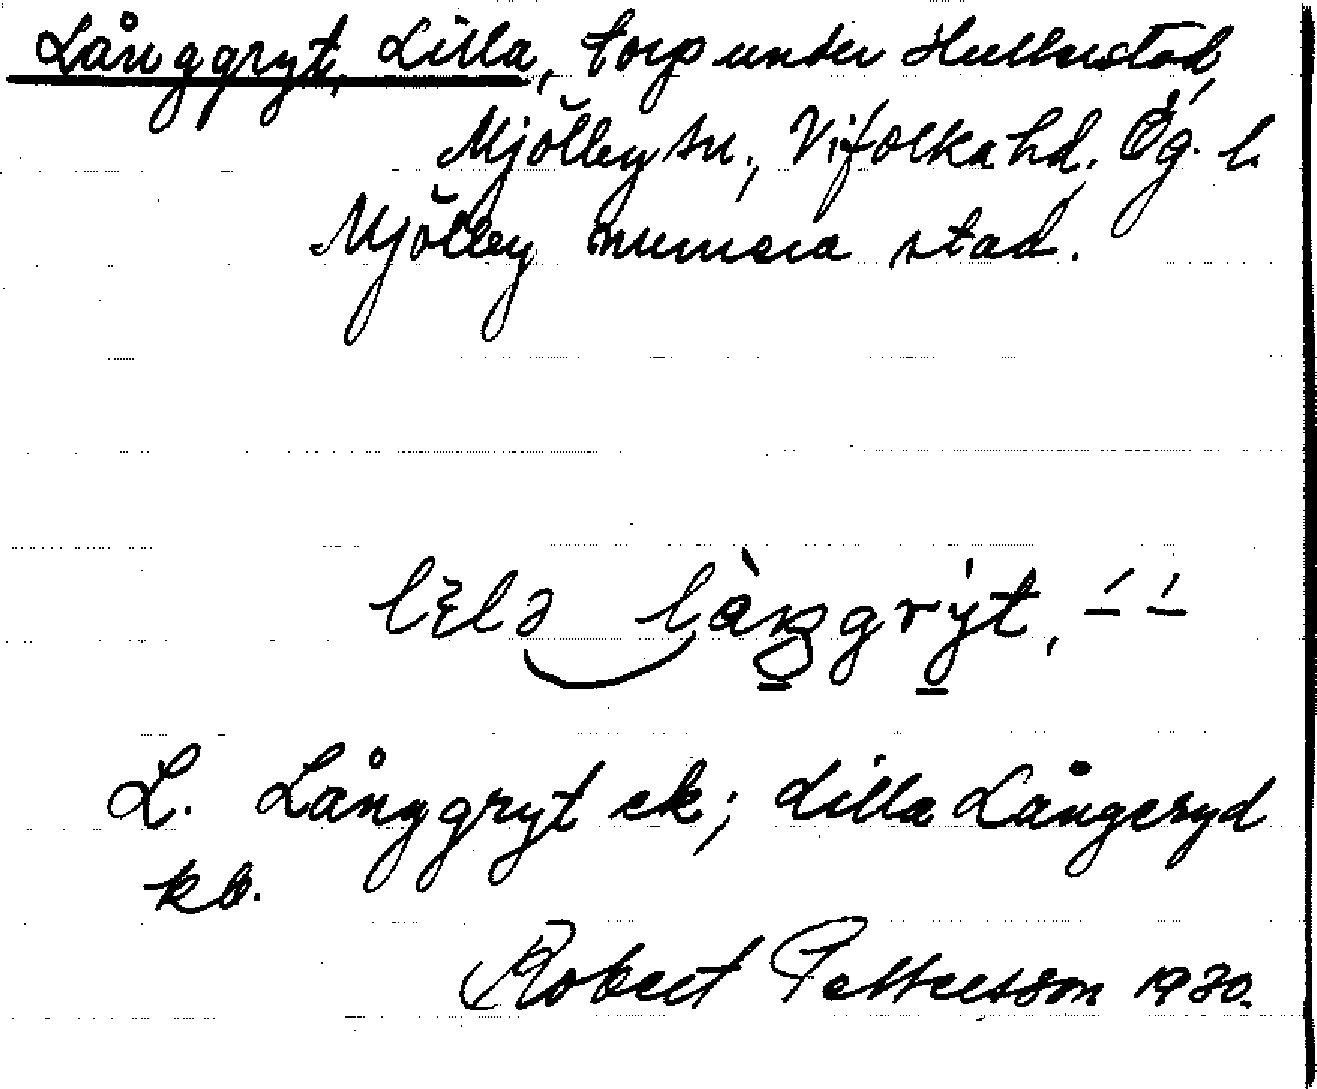 Långgryt, Lilla, torp under Hulterstad,
Mjölby sn., Vifolka hd. Ög. l.
Mjölby numera stad.
lɩlə làŋgrýt, –́ –́
L. Långgryt ek; Lilla Långeryd
kb.
Robert Pettersson 1930.